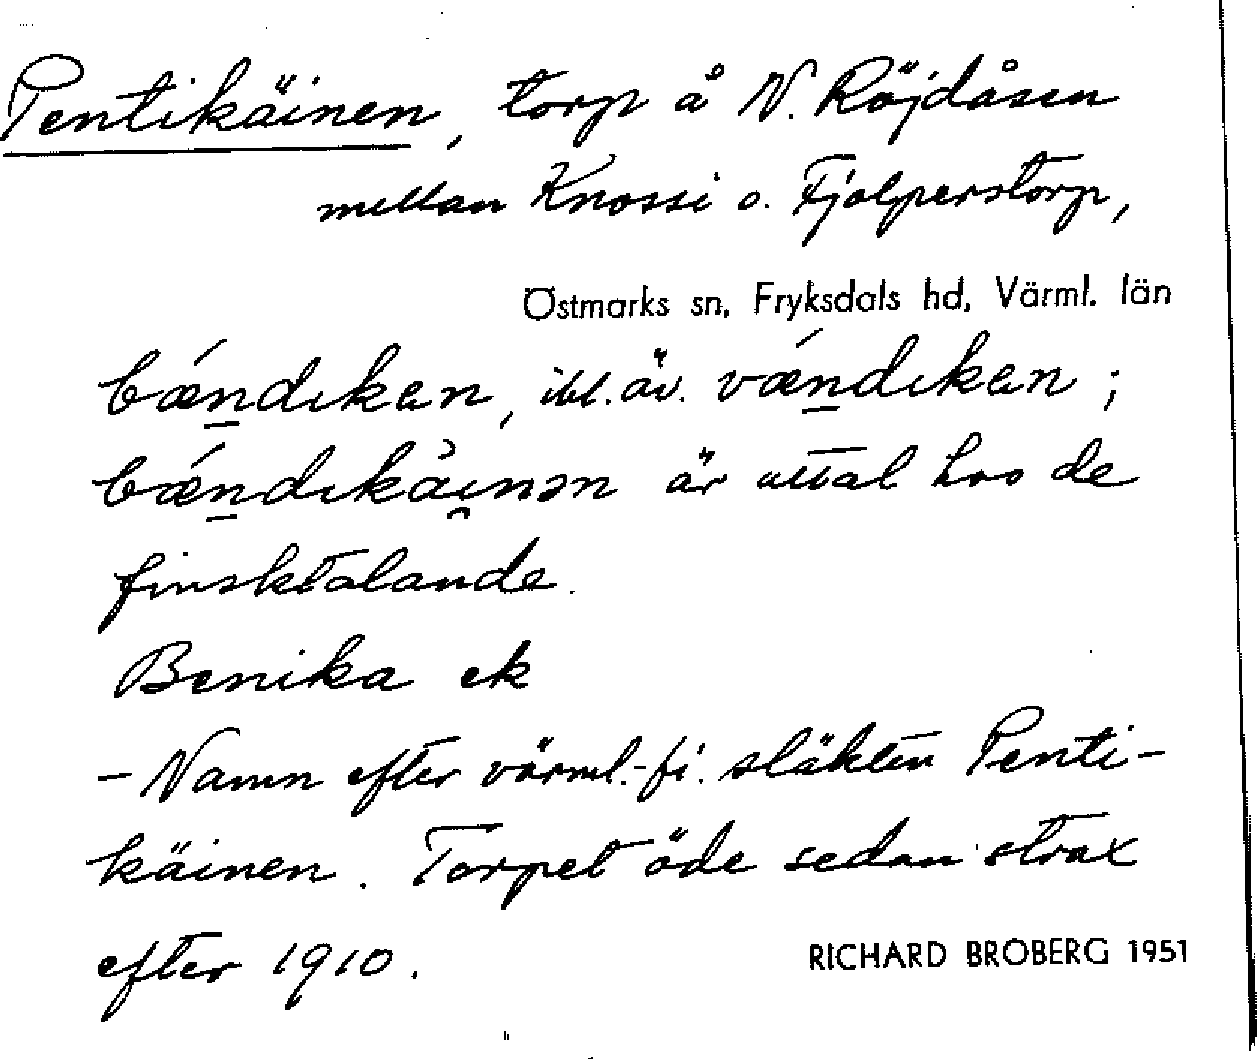 Pentikäinen, torp å N. Röjdåsen
mellan Knossi o. Fjolperstorp,
Östmarks sn, Fryksdals hd, Värml. län
bǽn̲dıkan, ibl. äv. vǽn̲dıkan;
bǽn̲dıkäı̯nən är uttal hos de
finsktalande.
Benika ek
- Namn efter värml.-fi. släkten Penti-
käinen. Torpet öde sedan strax
efter 1910.
RICHARD BROBERG 1951